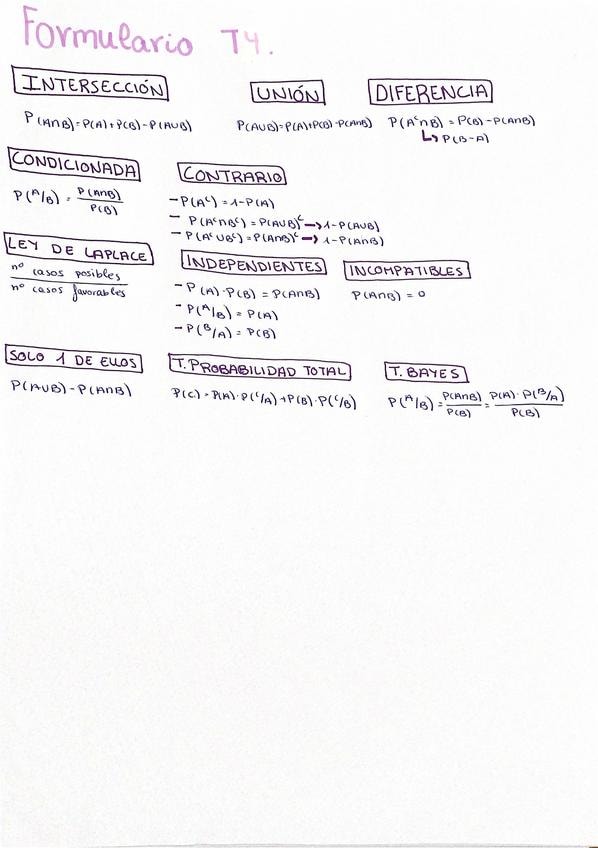 Formulario T4.
INTERSECCIÓN
P(A∩B)=P(A)+P(B)-P(A∪B)
UNIÓN
P(A∪B)=P(A)+P(B)-P(A∩B)
DIFERENCIA
P(Aᶜ∩B)=P(B)-P(A∩B)
↳ P(B-A)
CONDICIONADA
P(A/B) = P(A∩B)/P(B)
CONTRARIO
- P(Aᶜ) = 1-P(A)
- P(Aᶜ∩Bᶜ) = P(A∪B)ᶜ → 1-P(A∪B)
- P(Aᶜ∪Bᶜ) = P(A∩B)ᶜ → 1-P(A∩B)
LEY DE LAPLACE
nº casos posibles
nº casos favorables
INDEPENDIENTES
- P(A)·P(B) = P(A∩B)
- P(A/B) = P(A)
- P(B/A) = P(B)
INCOMPATIBLES
P(A∩B) = 0
SOLO 1 DE ELLOS
P(A∪B) - P(A∩B)
T. PROBABILIDAD TOTAL
P(C) = P(A)·P(C/A)+P(B)·P(C/B)
T. BAYES
P(A/B) = P(A∩B)/P(B) = P(A)·P(B/A)/P(B)